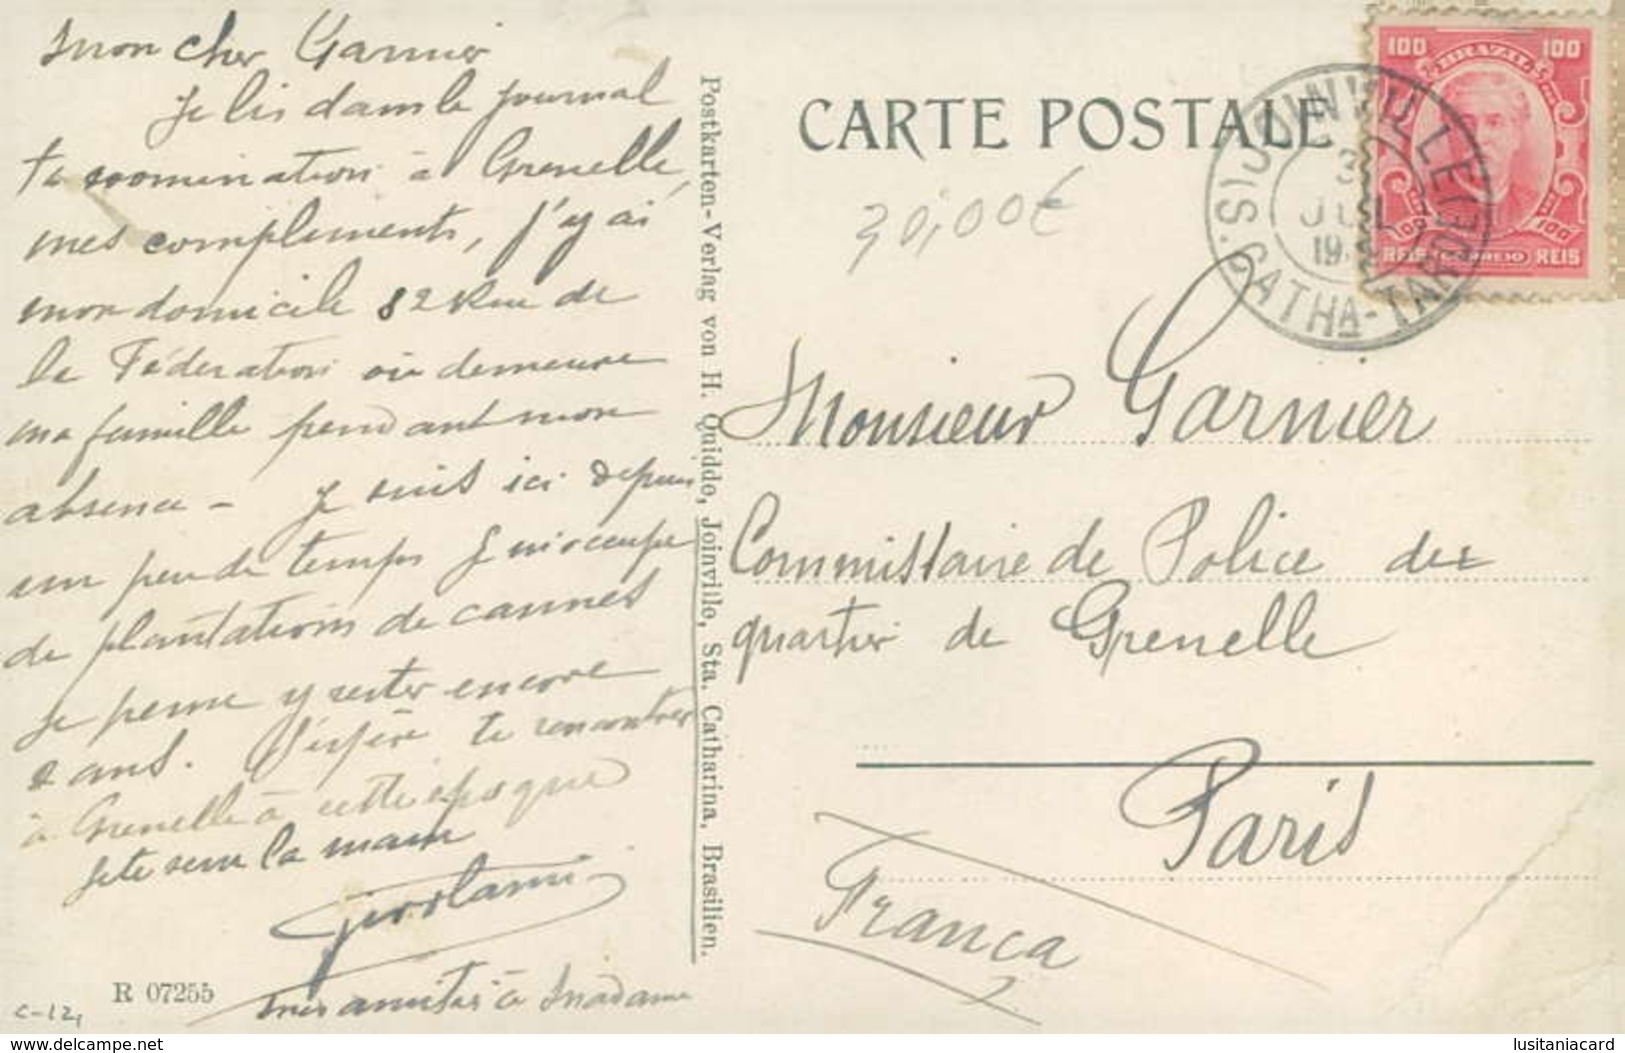 Mon cher Garnier
Je lis dans le journal
ta nomination à Grenelle,
mes compliments, j'y ai
mon domicile 82 Rue de
la Fédération où demeure
ma famille pendant mon
absence - Je suis ici depuis
un peu de temps je m'occupe
de plantations de cannes
je pense y rester encore
2 ans. J'espère te rencontrer
à Grenelle à cette époque
Je te serre la main
Mes amitiés à Madame
R 07255
C-12,
Postkarten-Verlag von H. Quiddo, Joinvile, Sta. Catharina, Brasilien.
CARTE POSTALE
30,00€
100 BRAZIL 100
100 100
REIS CORREIO REIS
JOINVILLE
S. CATHARINA
3
JUL
Monsieur Garnier
Commissaire de Police du
quartier de Grenelle
Paris
Franca
www.delcampe.net
lusitaniacard